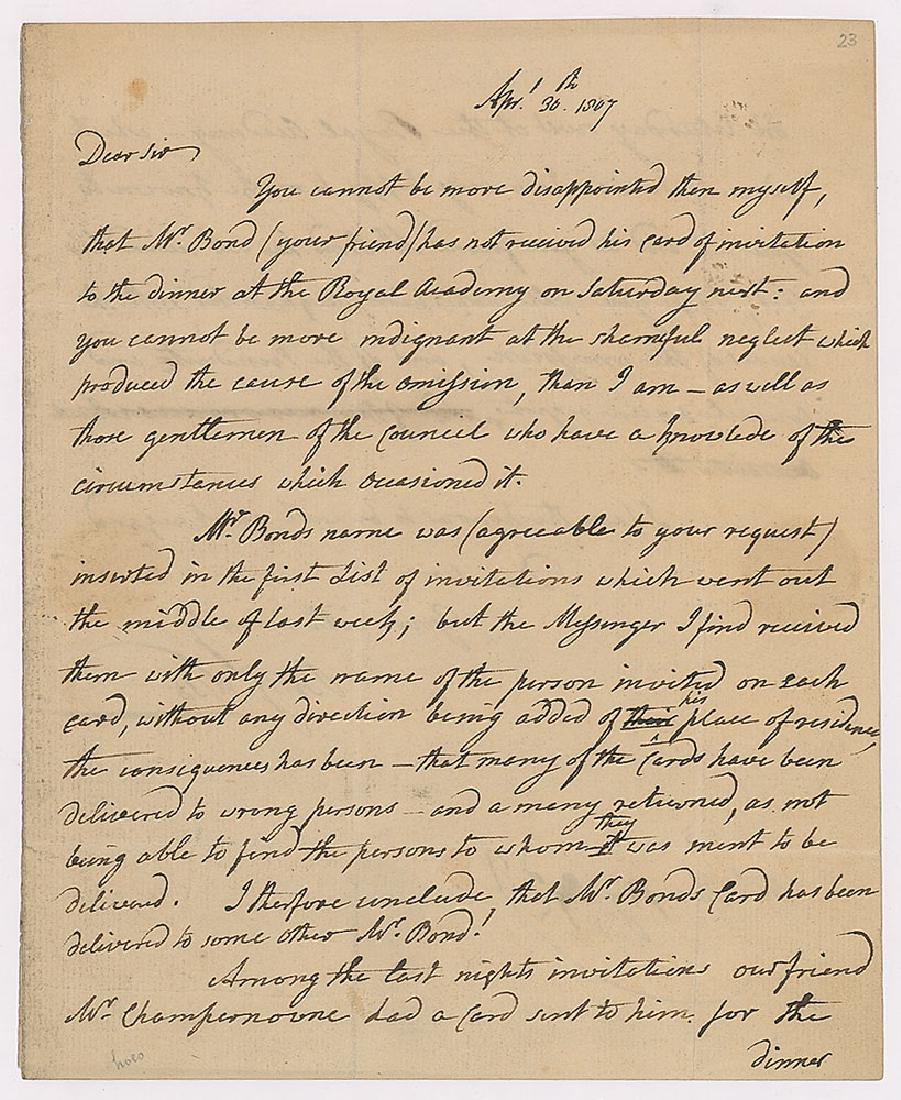 23
Apr.l 30.th 1807
Dear Sir
You cannot be more disappointed then myself,
that Mr. Bond (your friend) has not received his card of invitation
to the dinner at the Royal Academy on Saturday next: and
you cannot be more indignant at the shamful neglect which
produced the cause of the omission, than I am — as well as
those gentlemen of the Council who have a knowlede of the
circumstances which occasioned it.
Mr. Bonds name was (agreeable to your request)
inserted in the first List of invitations which went out
the middle of last week; but the Messenger I find received
them with only the name of the person invited on each
card, without any direction being added of their his place of residence,
the consequences has been — that many of the Cards have been
delivered to wrong persons — and a many returned, as not
being able to find the persons to whom it they was ment to be
delivered. I therfore conclude that Mr. Bonds Card has been
delivered to some other Mr. Bond!
Among the last nights invitations our friend
Mr. Champernowne had a Card sent to him for the
dinner